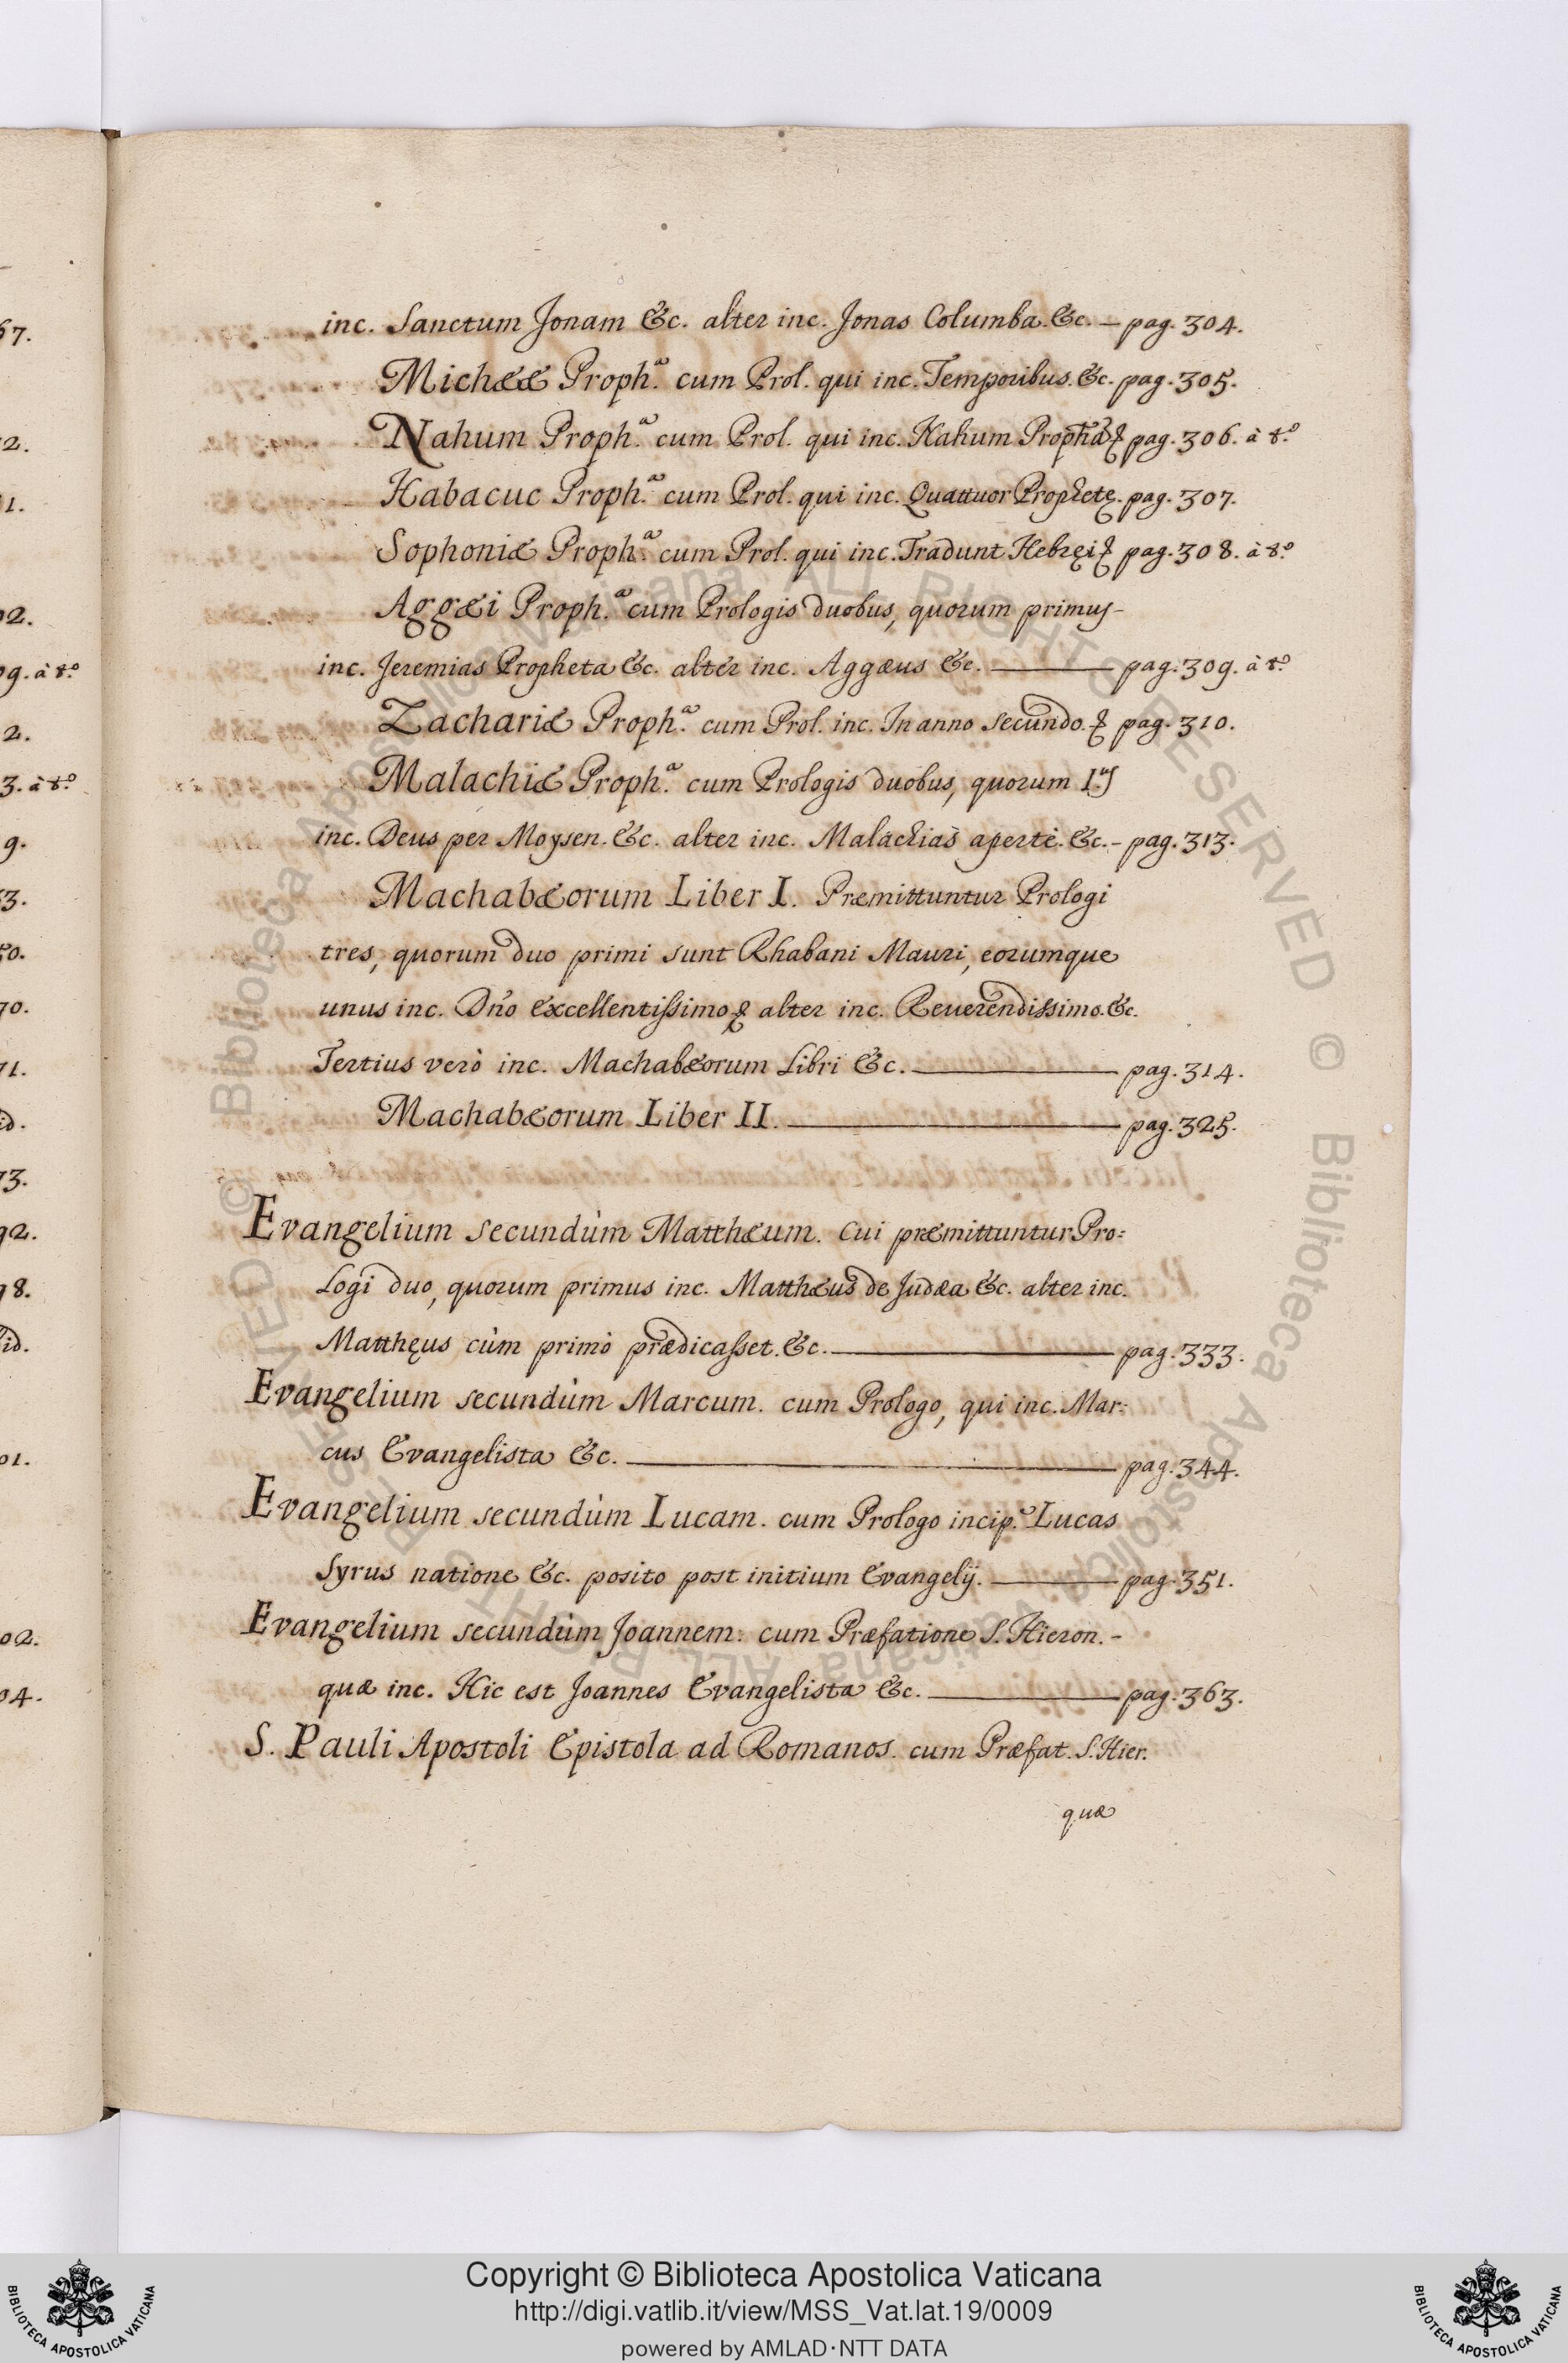 inc. Sanctum Jonam &c. alter inc. Jonas Columba. &c. — pag. 304.
Michææ Proph.ª cum Prol. qui inc. Temporibus. &c. pag. 305.
Nahum Proph.ª cum Prol. qui inc. Nahum Propha pag. 306. à t.º
Habacuc Proph.ª cum Prol. qui inc. Quattuor Prophetę. pag. 307.
Sophoniæ Proph.ª cum Prol. qui inc. Tradunt Hebręi pag. 308. à t.º
Aggæi Proph.ª cum Prologis duobus, quorum primus-
inc. Jeremias Propheta &c. alter inc. Aggæus &c. — pag. 309. à t.º
Zachariæ Proph.ª cum Prol. inc. In anno secundo. pag. 310.
Malachiæ Proph.ª cum Prologis duobus, quorum I.us
inc. Deus per Moysen. &c. alter inc. Malachias apertè. &c. - pag. 313.
Machabæorum Liber I. Præmittuntur Prologi
tres, quorum duo primi sunt Rhabani Mauri, eorumque
unus inc. Dño excellentissimo alter inc. Reuerendissimo. &c.
Tertius verò inc. Machabæorum Libri &c. — pag. 314.
Machabæorum Liber II. — pag. 325.
Evangelium secundùm Matthæum. cui præmittuntur Pro=
Logi duo, quorum primus inc. Matthæus de Judæa &c. alter inc.
Matthęus cùm primò prædicasset. &c. — pag. 333.
Evangelium secundùm Marcum. cum Prologo, qui inc. Mar=
cus Evangelista &c. — pag. 344.
Evangelium secundùm Lucam. cum Prologo incip.e Lucas
Syrus natione &c. posito post initium Evangelij. — pag. 351.
Evangelium secundùm Joannem: cum Præfatione S. Hieron. -
quæ inc. Hic est Joannes Evangelista &c. — pag. 363.
S. Pauli Apostoli Epistola ad Romanos. cum Præfat. S. Hier.
quæ
Copyright © Biblioteca Apostolica Vaticana
http://digi.vatlib.it/view/MSS_Vat.lat.19/0009
powered by AMLAD·NTT DATA